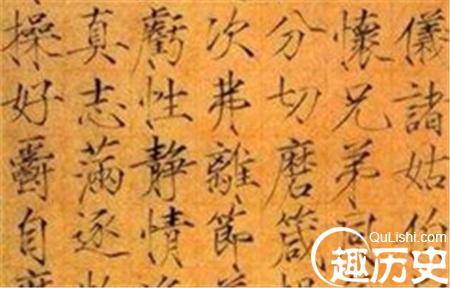 儀諸姑伯
懷兄弟同
分切磨箴
次弗離節
虧性靜情
真志滿逐
操好爵自
QuLishi.com
趣历史